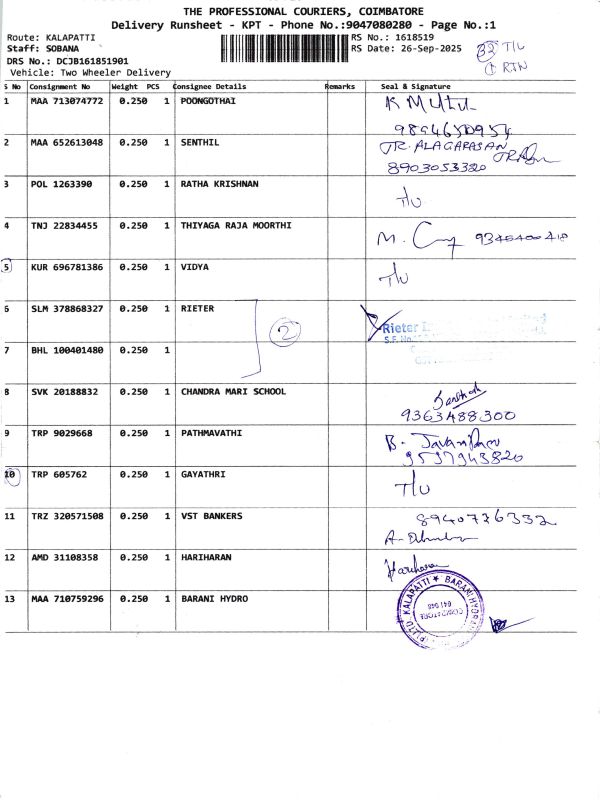 THE PROFESSIONAL COURIERS, COIMBATORE
Delivery Runsheet - KPT - Phone No.:9047080280 - Page No.:1
Route: KALAPATTI RS No.: 1618519
Staff: SOBANA RS Date: 26-Sep-2025
DRS No.: DCJB161851901
Vehicle: Two Wheeler Delivery
T/U
① RTN
S No Consignment No Weight PCS Consignee Details Remarks Seal & Signature
1 MAA 713074772 0.250 1 POONGOTHAI K Muthu
9894650954
2 MAA 652613048 0.250 1 SENTHIL JR. ALAGARASAN
8903053320
3 POL 1263390 0.250 1 RATHA KRISHNAN T/U
4 TNJ 22834455 0.250 1 THIYAGA RAJA MOORTHI M.
5 KUR 696781386 0.250 1 VIDYA T/U
6 SLM 378868327 0.250 1 RIETER Rieter
2
7 BHL 100401480 0.250 1
8 SVK 20188832 0.250 1 CHANDRA MARI SCHOOL
9363488300
9 TRP 9029668 0.250 1 PATHMAVATHI B.
9597943820
10 TRP 605762 0.250 1 GAYATHRI T/U
11 TRZ 320571508 0.250 1 VST BANKERS 8940736332
12 AMD 31108358 0.250 1 HARIHARAN Hariharan
13 MAA 710759296 0.250 1 BARANI HYDRO
KALAPATTI ★ BARANI HYDRAU
COIMBATORE
641 048